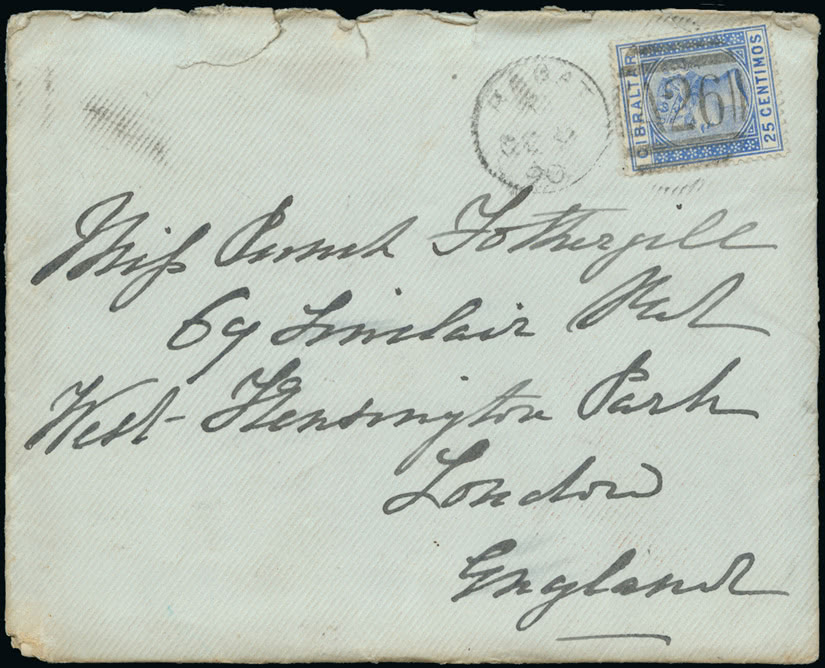 GIBRALTAR
25 CENTIMOS
A26
90
Miss Fothergill
69 Sinclair Rd
West-Kensington Park
London
England